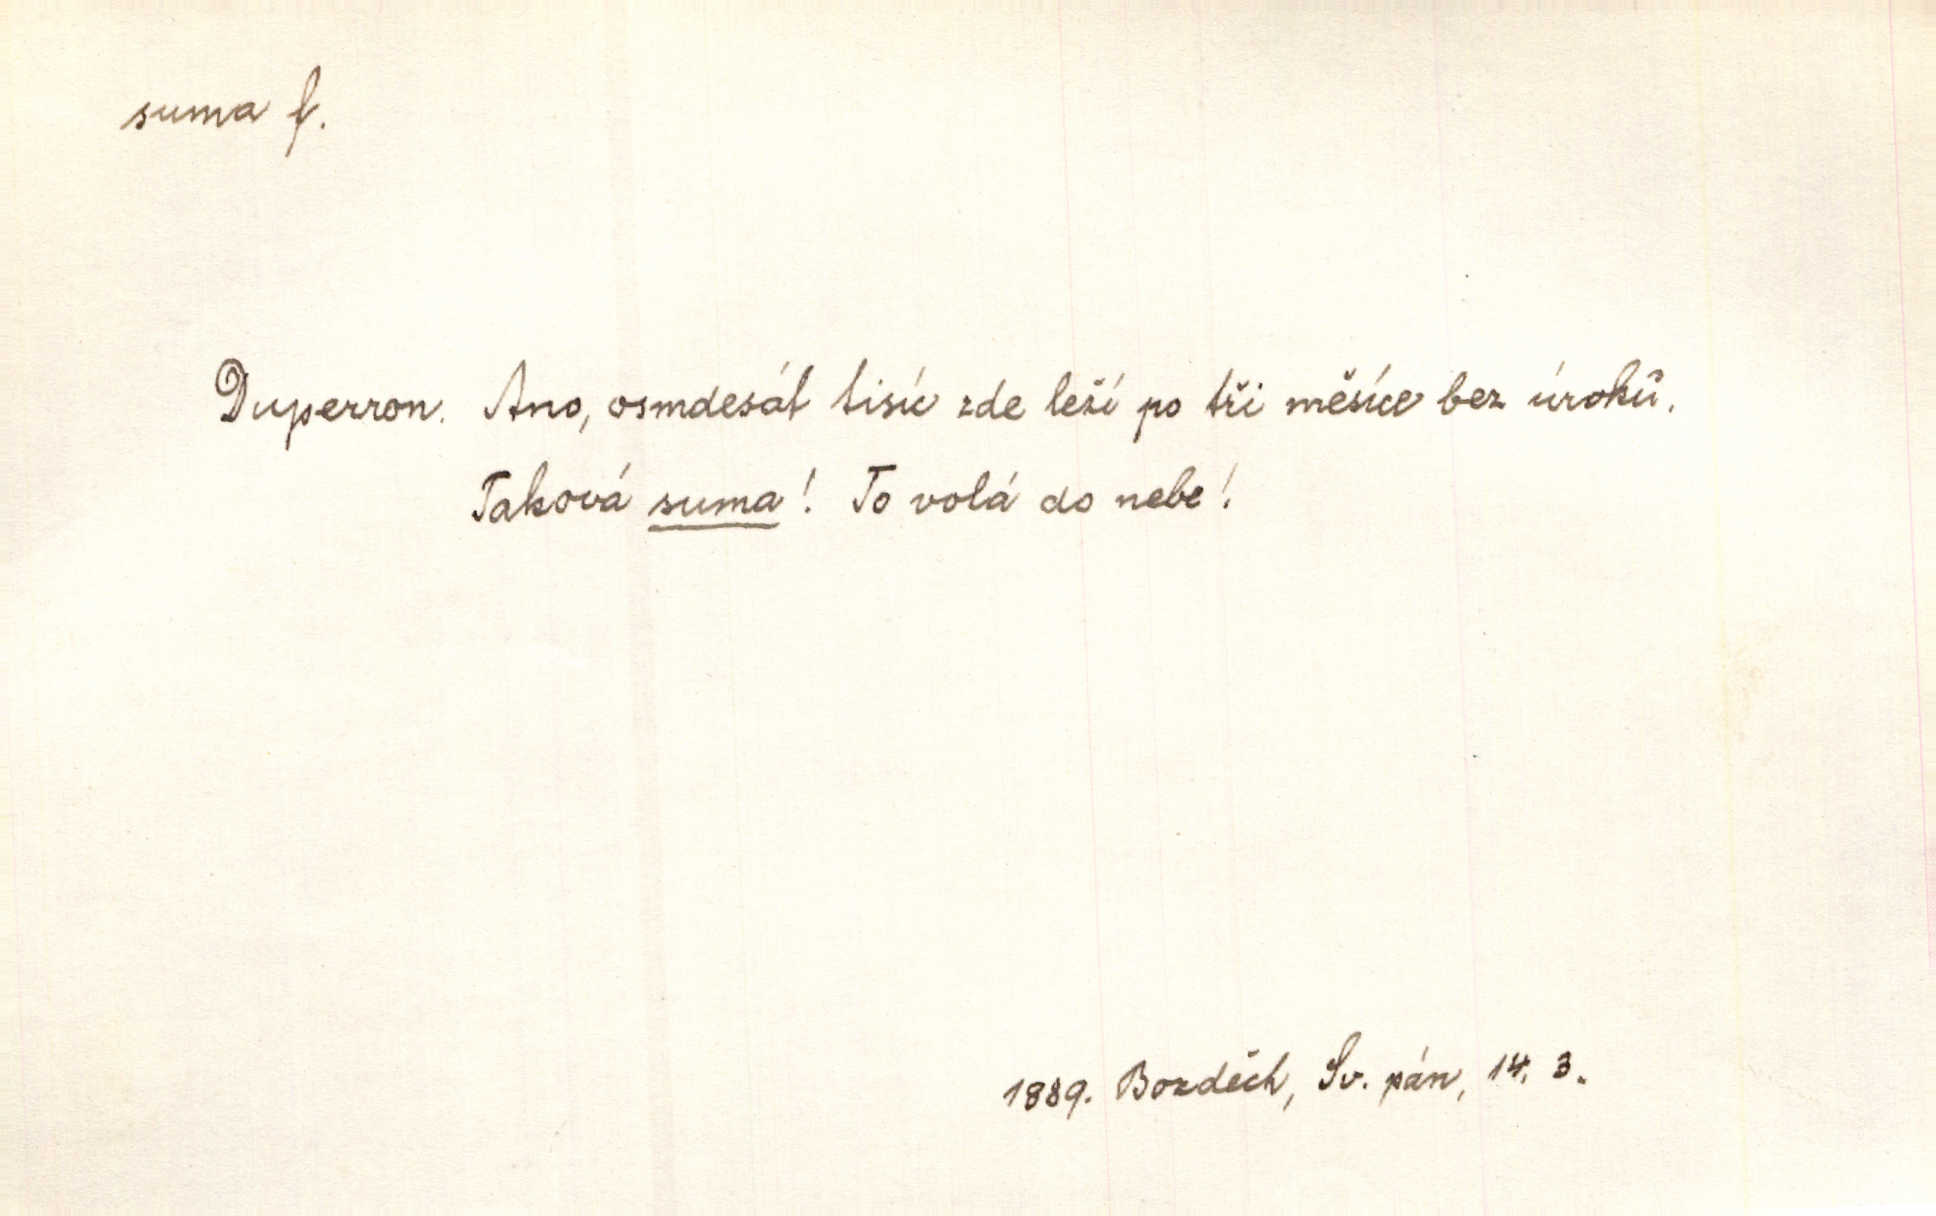 suma f.
Duperron. Ano, osmdesát tisíc zde leží po tři měsíce bez úroků.
Taková suma! To volá do nebe!
1889. Bozděch, Sv. pán, 14, 3.